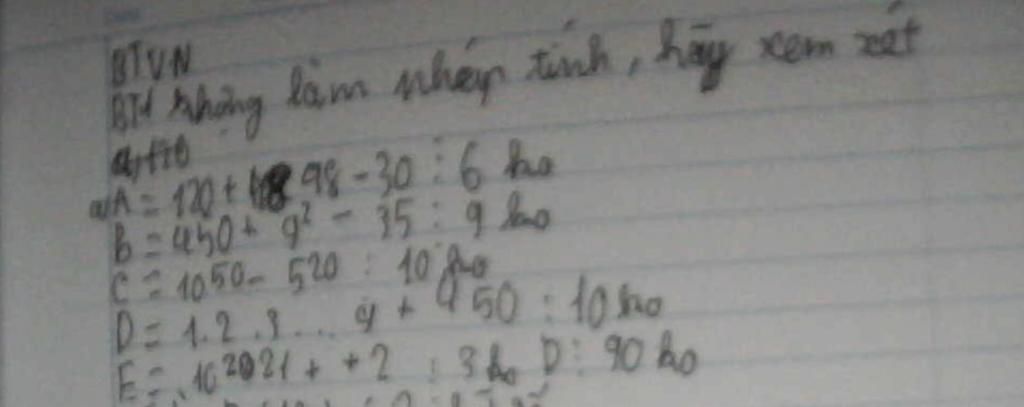 BTVN
BT1 không làm nháp tính, hãy xem xét
a, A = 120 + 98 - 30 : 6 ko
B = 450 + 9² - 35 : 9 ko
C = 10⁵⁰ - 5²⁰ : 10 ko
D = 1.2.3... 9 + 950 : 10 ko
E = 10²⁰²¹ + + 2 : 3 ko D : 90 ko